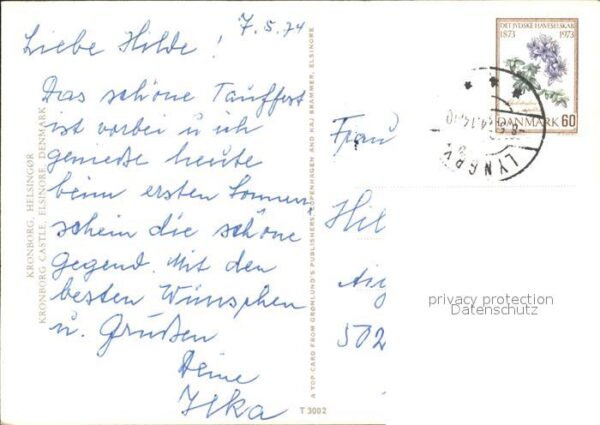 7.5.74
Liebe Hilde!
Das schöne Tauffest
ist vorbei u ich
genieße heute
beim ersten Sonnen-
schein die schöne
Gegend. Mit den
besten Wünschen
u. Grüßen
Deine
Ilka
KRONBORG, HELSINGØR
KRONBORG CASTLE, ELSINORE, DENMARK
A TOP-CARD FROM GRØNLUND'S PUBLISHERS, COPENHAGEN AND KAJ BRAMMER, ELSINORE
T 3002
DET JYDSKE HAVESELSKAB
1873 1973
DANMARK 60
LYNGBY
Frau
Hil
502
privacy protection
Datenschutz